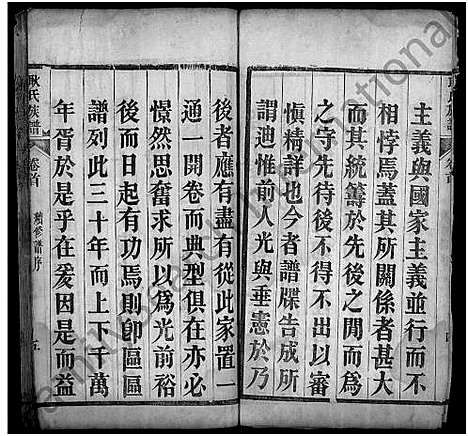 主義與國家主義並行而不
相悖焉蓋其所關係者甚大
而其統籌於先後之間而爲
之守先待後不得不出以審
愼精詳如今者譜牒告成所
謂迪惟前人光與垂憲於乃
後者應有盡有從此家置一
通一開卷而典型俱在亦必
憬然奮求所以爲光前裕
後而日起有功焉則卽區區
譜列此三十年而上下千萬
年胥於是乎在爰因是而益
耿氏族譜 卷首 續修譜序 五